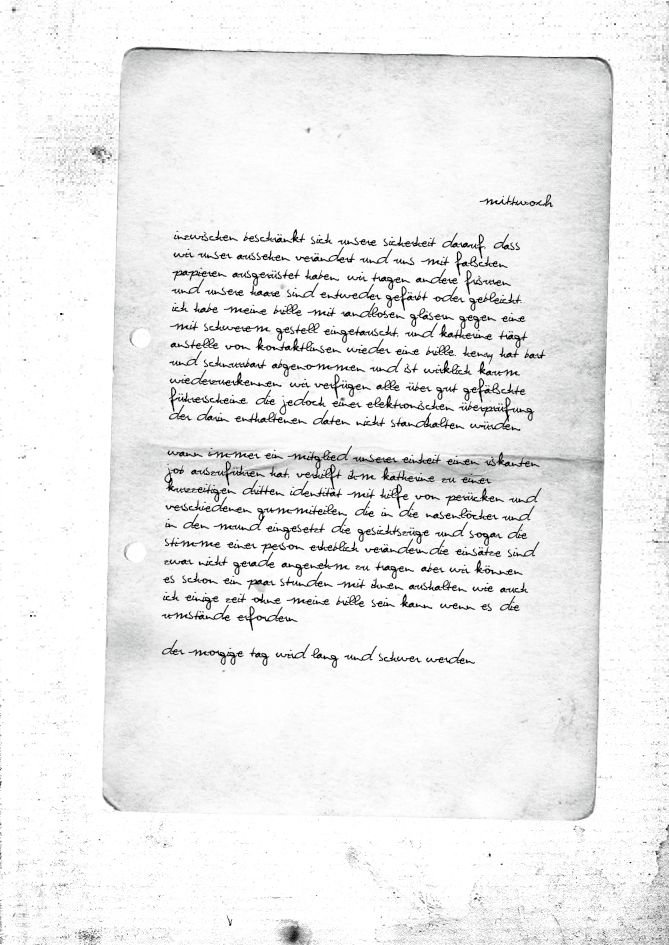 mittwoch
inzwischen beschränkt sich unsere sicherheit darauf, dass
wir unser aussehen verändert und uns mit falschen
papieren ausgerüstet haben. wir tragen andere frisuren
und unsere haare sind entweder gefärbt oder gebleicht.
ich habe meine brille mit randlosen gläsern gegen eine
mit schwerem gestell eingetauscht. und katherine trägt
anstelle von kontaktlinsen wieder eine brille. henry hat bart
und schnurrbart abgenommen und ist wirklich kaum
wiederzuerkennen wir verfügen alle über gut gefälschte
führerscheine die jedoch einer elektronischen überprüfung
der darin enthaltenen daten nicht standhalten würden.
wann immer ein mitglied unserer einheit einen riskanten
job auszuführen hat. verhilft ihm katherine zu einer
kurzzeitigen dritten identität mit hilfe von perücken und
verschiedenen gummiteilen die in die nasenlöcher und
in den mund eingesetzt die gesichtszüge und sogar die
stimme einer person erheblich verändern die einsätze sind
zwar nicht gerade angenehm zu tragen aber wir können
es schon ein paar stunden mit ihnen aushalten wie auch
ich einige zeit ohne meine brille sein kann wenn es die
umstände erfordern
der morgige tag wird lang und schwer werden